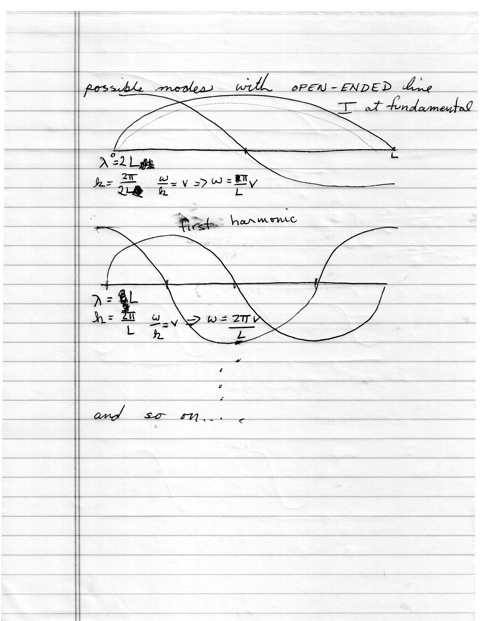 possible modes with OPEN-ENDED line
I at fundamental
0 L
λ = 2L
k = 2π/2L ω/k = v => ω = π/L v
first harmonic
λ = L
k = 2π/L ω/k = v => ω = 2πv/L
and so on...